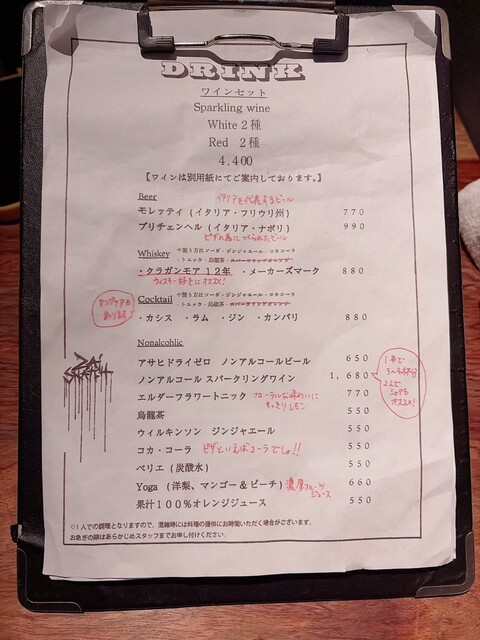 DRINK
ワインセット
Sparkling wine
White 2種
Red 2種
4,400
【ワインは別用紙にてご案内しております。】
Beer イタリアを代表するビール
モレッティ（イタリア・フリウリ州） 770
プリチェンヘル（イタリア・ナポリ） 990
ピザの為につくられたビール
Whiskey
・トニック・烏龍茶・スパークリングオレンジ
・クラガンモア 12年 ・メーカーズマーク 880
ウィスキー好きにオススメ!
Cocktail
・トニック・烏龍茶・スパークリングオレンジ
あります
・カシス ・ラム ・ジン ・カンパリ 880
Nonalcohlic
アサヒドライゼロ ノンアルコールビール 650
ノンアルコール スパークリングワイン 1,680
1本で
3~4杯分
2人で
シェアも
オススメ!
エルダーフラワートニック フローラルな味わいに 770
すっきりレモン
烏龍茶 550
ウィルキンソン ジンジャエール 550
コカ・コーラ ピザといえばコーラでしょ!! 550
ペリエ（炭酸水） 550
Yoga （洋梨、マンゴー＆ピーチ） 濃厚フルーツ 660
ジュース
果汁100%オレンジジュース 550
◇1人での調理となりますので、混雑時には料理の提供にお時間いただく場合がございます。
お急ぎの際はあらかじめスタッフまでお申し付けください。